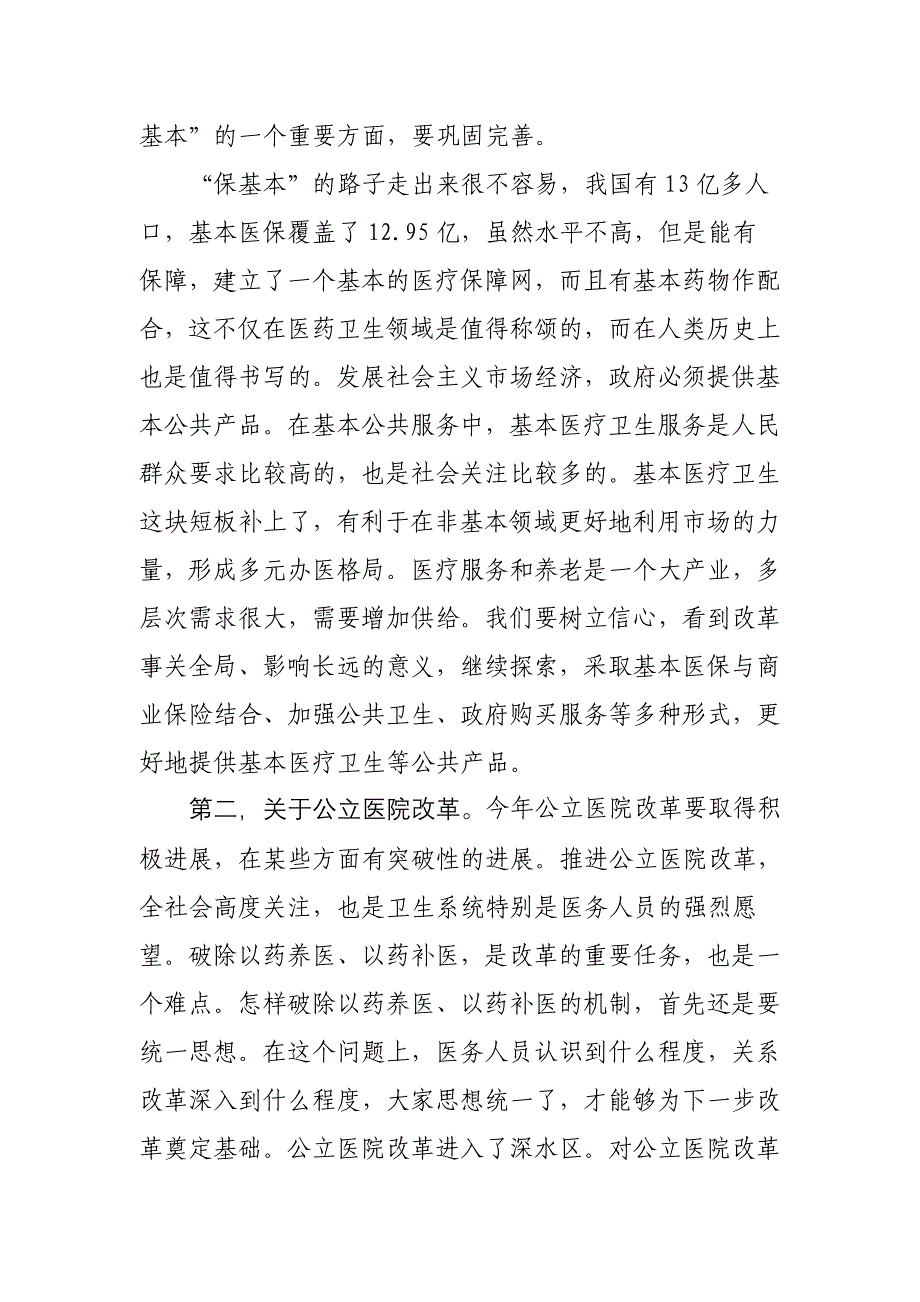 基本”的一个重要方面，要巩固完善。
“保基本”的路子走出来很不容易，我国有13亿多人
口，基本医保覆盖了12.95亿，虽然水平不高，但是能有
保障，建立了一个基本的医疗保障网，而且有基本药物作配
合，这不仅在医药卫生领域是值得称颂的，而在人类历史上
也是值得书写的。发展社会主义市场经济，政府必须提供基
本公共产品。在基本公共服务中，基本医疗卫生服务是人民
群众要求比较高的，也是社会关注比较多的。基本医疗卫生
这块短板补上了，有利于在非基本领域更好地利用市场的力
量，形成多元办医格局。医疗服务和养老是一个大产业，多
层次需求很大，需要增加供给。我们要树立信心，看到改革
事关全局、影响长远的意义，继续探索，采取基本医保与商
业保险结合、加强公共卫生、政府购买服务等多种形式，更
好地提供基本医疗卫生等公共产品。
第二，关于公立医院改革。今年公立医院改革要取得积
极进展，在某些方面有突破性的进展。推进公立医院改革，
全社会高度关注，也是卫生系统特别是医务人员的强烈愿
望。破除以药养医、以药补医，是改革的重要任务，也是一
个难点。怎样破除以药养医、以药补医的机制，首先还是要
统一思想。在这个问题上，医务人员认识到什么程度，关系
改革深入到什么程度，大家思想统一了，才能够为下一步改
革奠定基础。公立医院改革进入了深水区。对公立医院改革